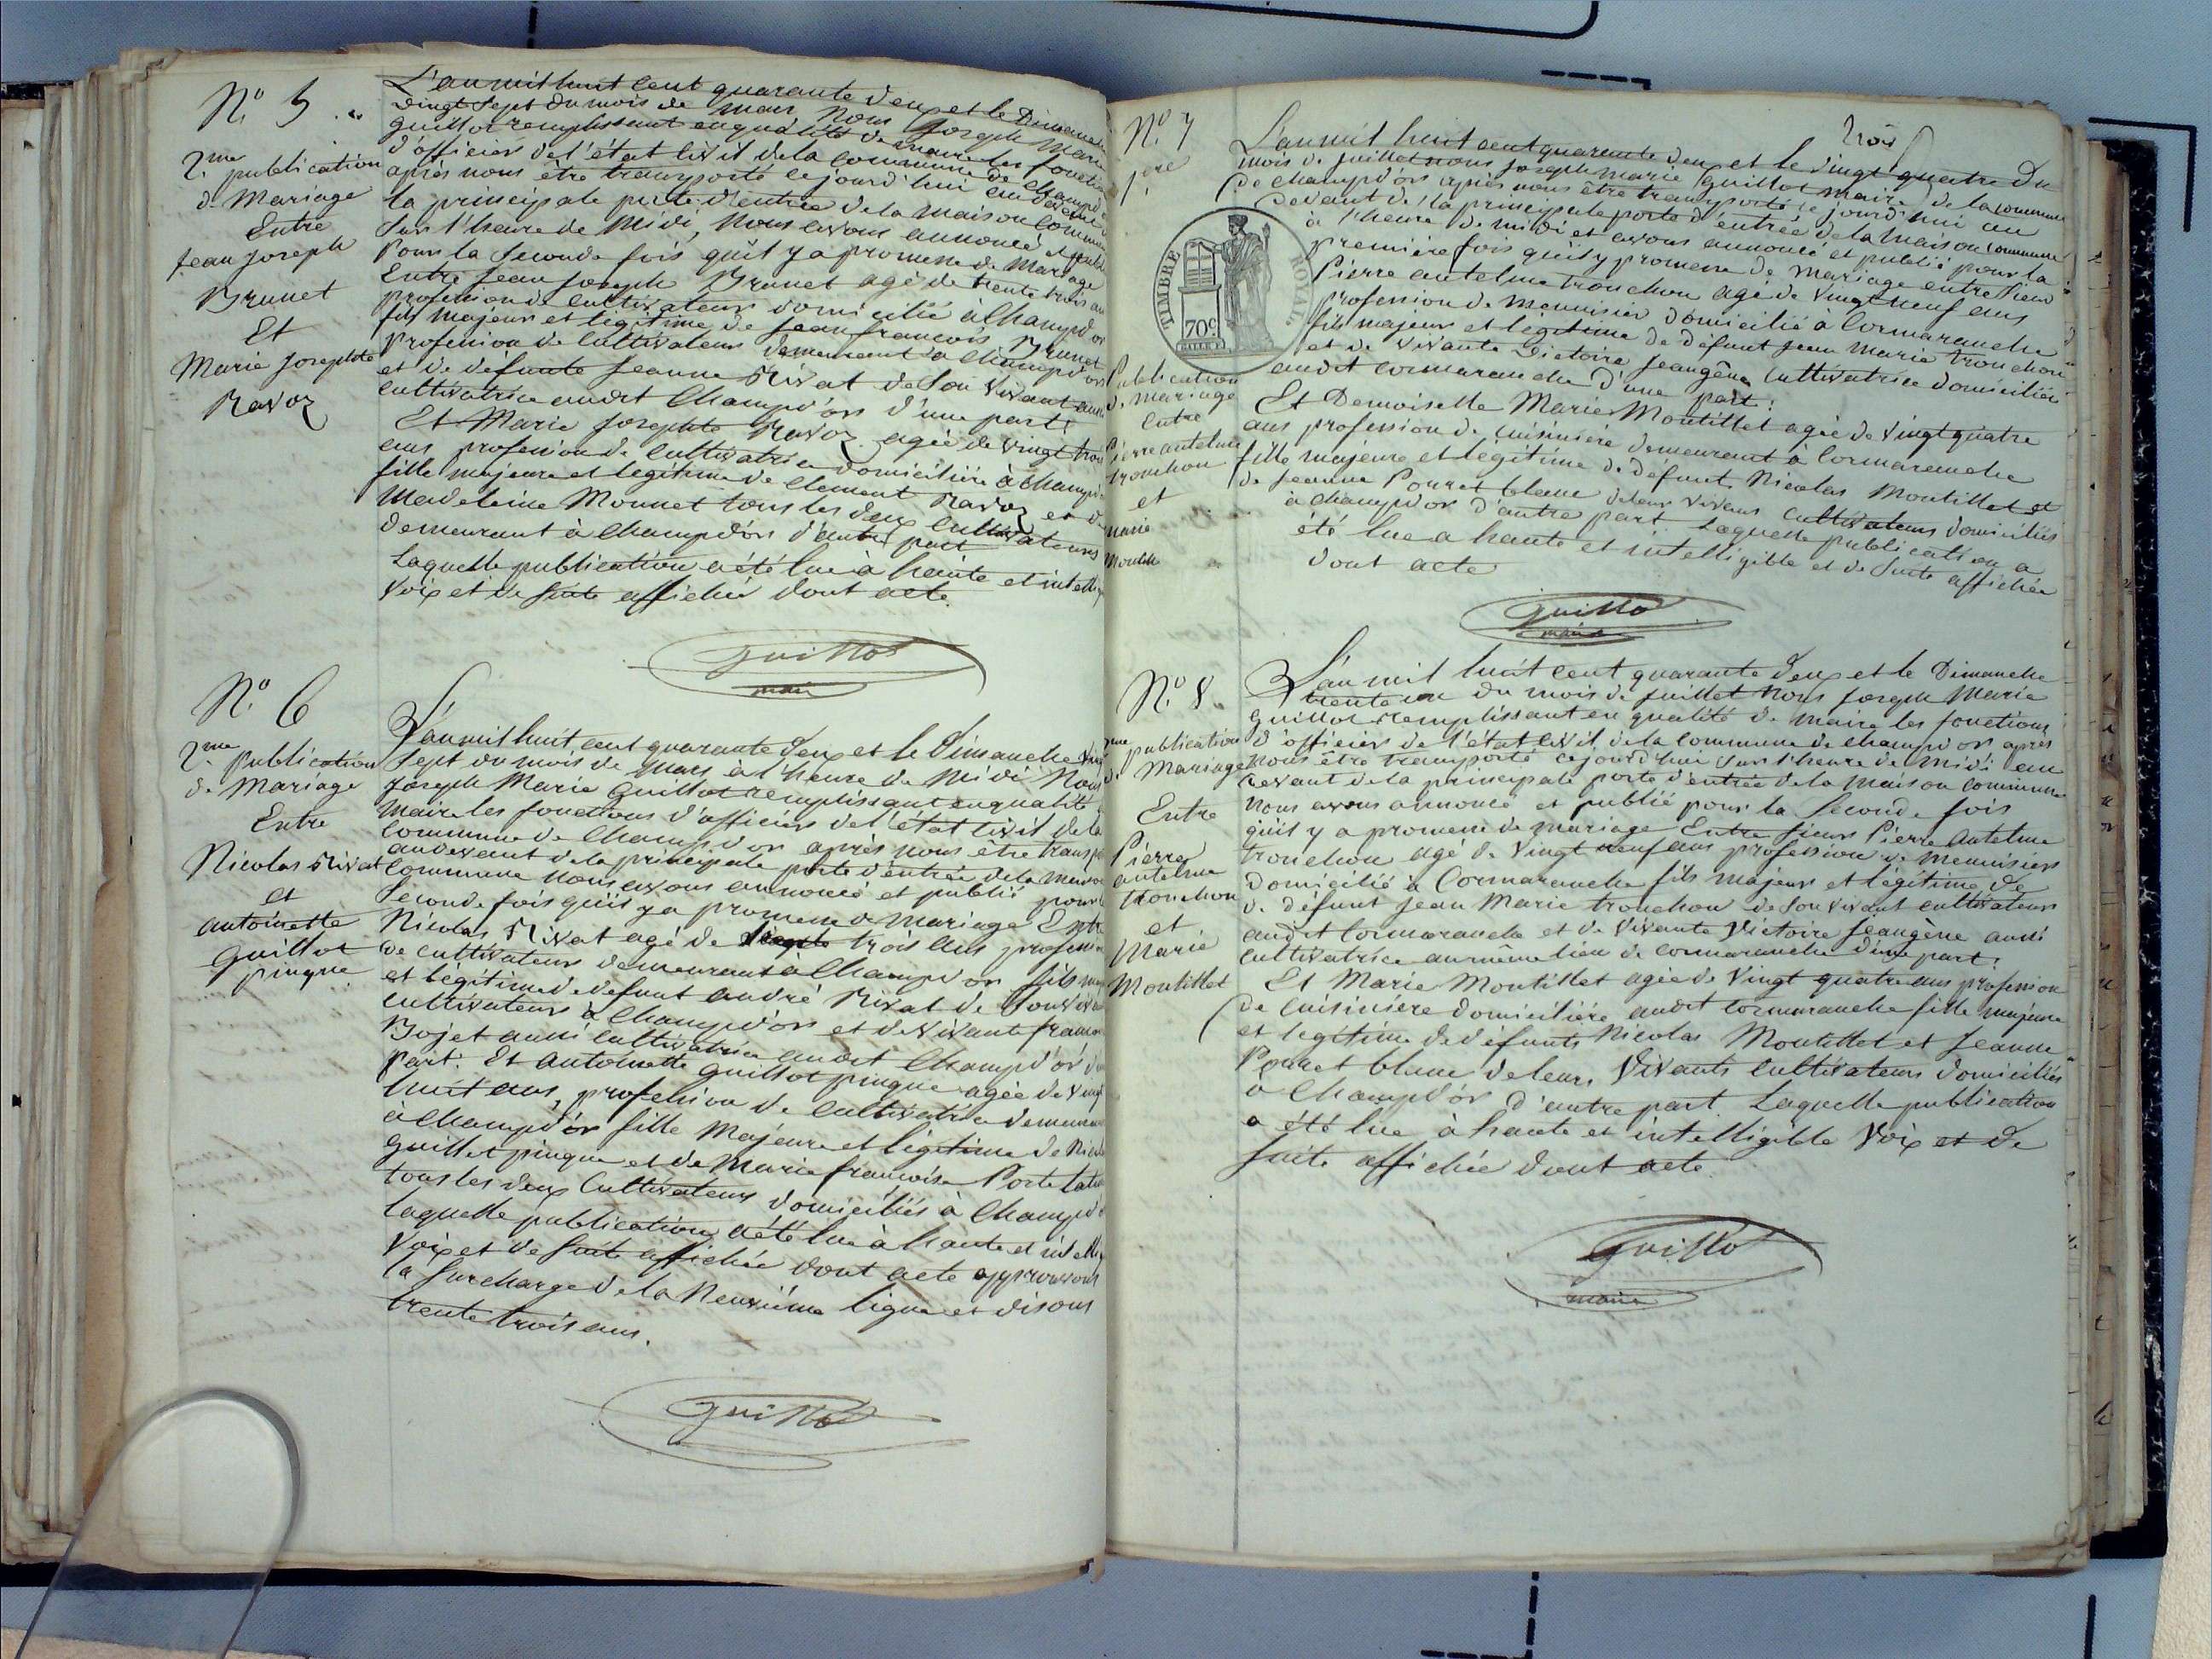 N.º 5
2.me publication
de Mariage
Entre
Jean Joseph
Brunet
Et
Marie Josephte
Ravoz
L'an mil huit cent quarante deux et le Dimanche
vingt sept du mois de mars Nous Joseph Marie
Guillot remplissant en qualité de maire les fonctions
d'officier de l'état civil de la commune de Champd'or
après nous être transporté cejourd'hui au devant de
la principale porte d'entrée de la maison commune
Sur l'heure de Midi, Nous avons annoncé et publié
Pour la Seconde fois qu'il y a promesse de Mariage
Entre Jean Joseph Brunet agé de trente trois ans
profession de Cultivateur domicilié à Champd'or
fils majeur et légitime de Jean françois Brunet
Profession de Cultivateur demeurant à Champd'or
et de défunte Jeanne Rivat de Son Vivant aussi
cultivatrice audit Champd'or d'une part.
Et Marie Josephte Ravoz agée de vingt trois
ans profession de Cultivatrice domiciliée à Champd'or
fille majeure et legitime de Clement Ravoz et de
Madeleine Monnet tous les deux Cultivateurs
demeurant à Champd'or d'autre part
Laquelle publication a été lue à haute et intellig
Voix et de Suite affichée dont acte.
Guillot
maire
N.º 6
2.me publication
de Mariage
Entre
Nicolas Rivat
et
antoinette
Guillot
pingue
L'an mil huit cent quarante deux et le dimanche vingt
Sept du mois de Mars à l'heure de Midi Nous
Joseph Marie Guillot remplissant en qualité
Maire les fonctions d'officier de l'état Civil de la
Commune de Champd'or après nous être transp
audevant de la principale porte d'entrée de la maison
Commune Nous avons annoncé et publié pour la
Seconde fois qu'il y a promesse de Mariage Entre
Nicolas Rivat agé de trois ans profession
de cultivateur demeurant à Champd'or fils maj
et légitime de defunt andré Rivat de Son viva
Cultivateur à Champd'or et de vivante franço
Bojet aussi Cultivatrice audit Champd'or d'u
Part. Et antoinette Guillot pingue agée de Vingt
huit ans, profession de Cultivatrice demeura
à Champd'or fille Majeure et Légitime de Nicola
Guillot pingue et de Marie françoise
tous les deux Cultivateurs domiciliés à Champd'o
Laquelle publication a été lue à haute et intellig
Voix et de Suite affichée dont acte approuvons
la Surcharge de la Neuvième ligne et disons
trente trois ans.
Guillot
trois
N.º 7
1ere
TIMBRE ROYAL
70 c.
Publication
de Mariage
Entre
Pierre antelme
tronchon
et
Marie
Montillet
L'an mil huit cent quarante deux et le vingt quatre du
mois de Juillet nous Joseph Marie Guillot Maire de la commune
de Champd'or après nous être transporté ce jourd'hui au
devant de la principale porte d'entrée de la Maison Commune
à l'heure de midi et avons annoncé et publié pour la
première fois qu'il y promesse de Mariage entre Sieur
Pierre antelme tronchon agé de Vingt neuf ans
profession de Menuisier domicilié à Cormaranche
fils majeur et légitime de défunt Jean Marie tronchon
et de Vivante Victoire Jeangêne Cultivatrice domiciliée
audit cormaranche d'une part:
Et Demoiselle Marie Montillet agée de Vingt quatre
ans profession de cuisinière demeurant à Cormaranche
fille majeure et légitime de défunts Nicolas Montillet et
de Jeanne Pourret blanc de leurs Vivans Cultivateurs domiciliés
à Champd'or d'autre part Laquelle publication a
été lue a haute et intelligible et de Suite affichée
dont acte
Guillot
maire
N.º 8
2me publication
de Mariage
Entre
Pierre
antelme
tronchon
et
Marie
Montillet
L'an mil huit cent quarante deux et le Dimanche
trente un du mois de Juillet Nous Joseph Marie
Guillot remplissant en qualité de Maire les fonctions
d'officier de l'état civil de la Commune de Champd'or après
Nous être transporté cejourd'hui Sur l'heure de Midi au
devant de la principale porte d'entrée de la Maison commune
Nous avons annoncé et publié pour la Seconde fois
qu'il y a promesse de mariage Entre Sieur Pierre antelme
tronchon agé de Vingt neuf ans profession de Menuisier
domicilié à Cormaranche fils majeur et légitime de
de défunt Jean Marie tronchon de Son vivant cultivateur
audit Cormaranche et de Vivante Victoire Jeangêne aussi
Cultivatrice au même lieu de cormaranche d'une part.
Et Marie Montillet agée de Vingt quatre ans profession
de Cuisinière domiciliée audit cormaranche fille majeure
et legitime de défunts Nicolas Montillet et Jeanne
Pourret blanc de leurs Vivants Cultivateurs domiciliés
à Champd'or d'autre part. Laquelle publication
a été lue à haute et intelligible Voix et de
Suite affichée dont acte.
Guillot
maire